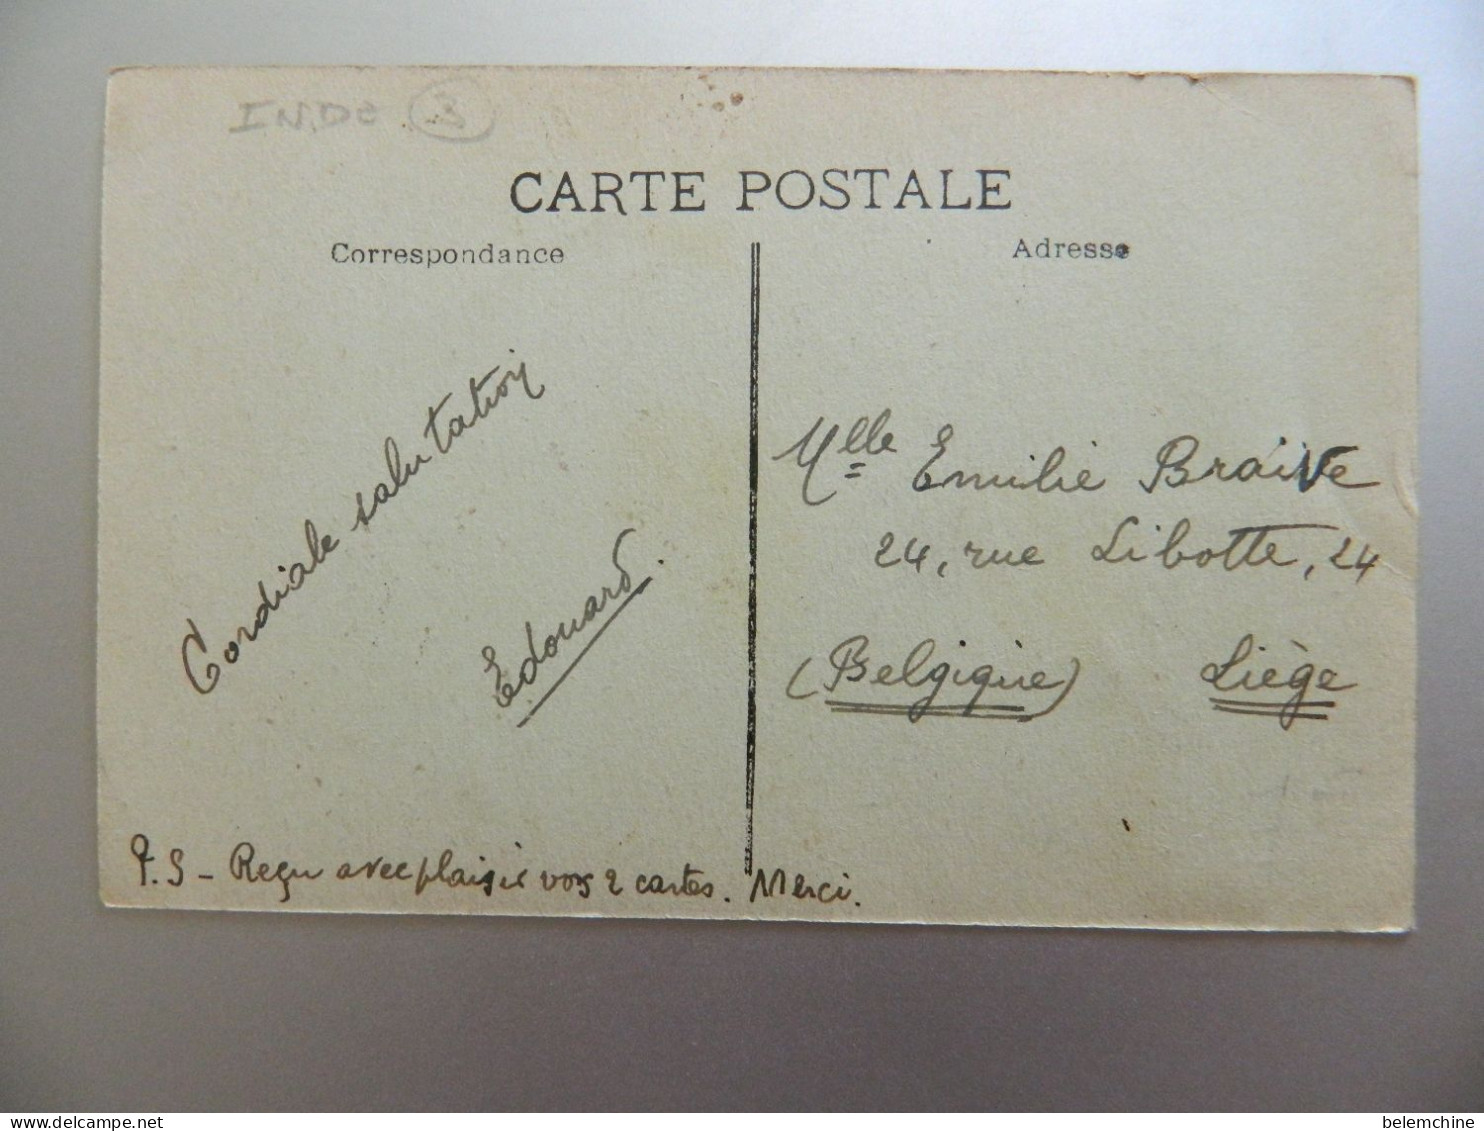 INDE 3
CARTE POSTALE
Correspondance
Adresse
Cordiale salutation
Edouard.
Mlle Emilie Braive
24, rue Libotte, 24
(Belgique) Liège
P.S - Reçu avec plaisir vos 2 cartes. Merci.
belemchine